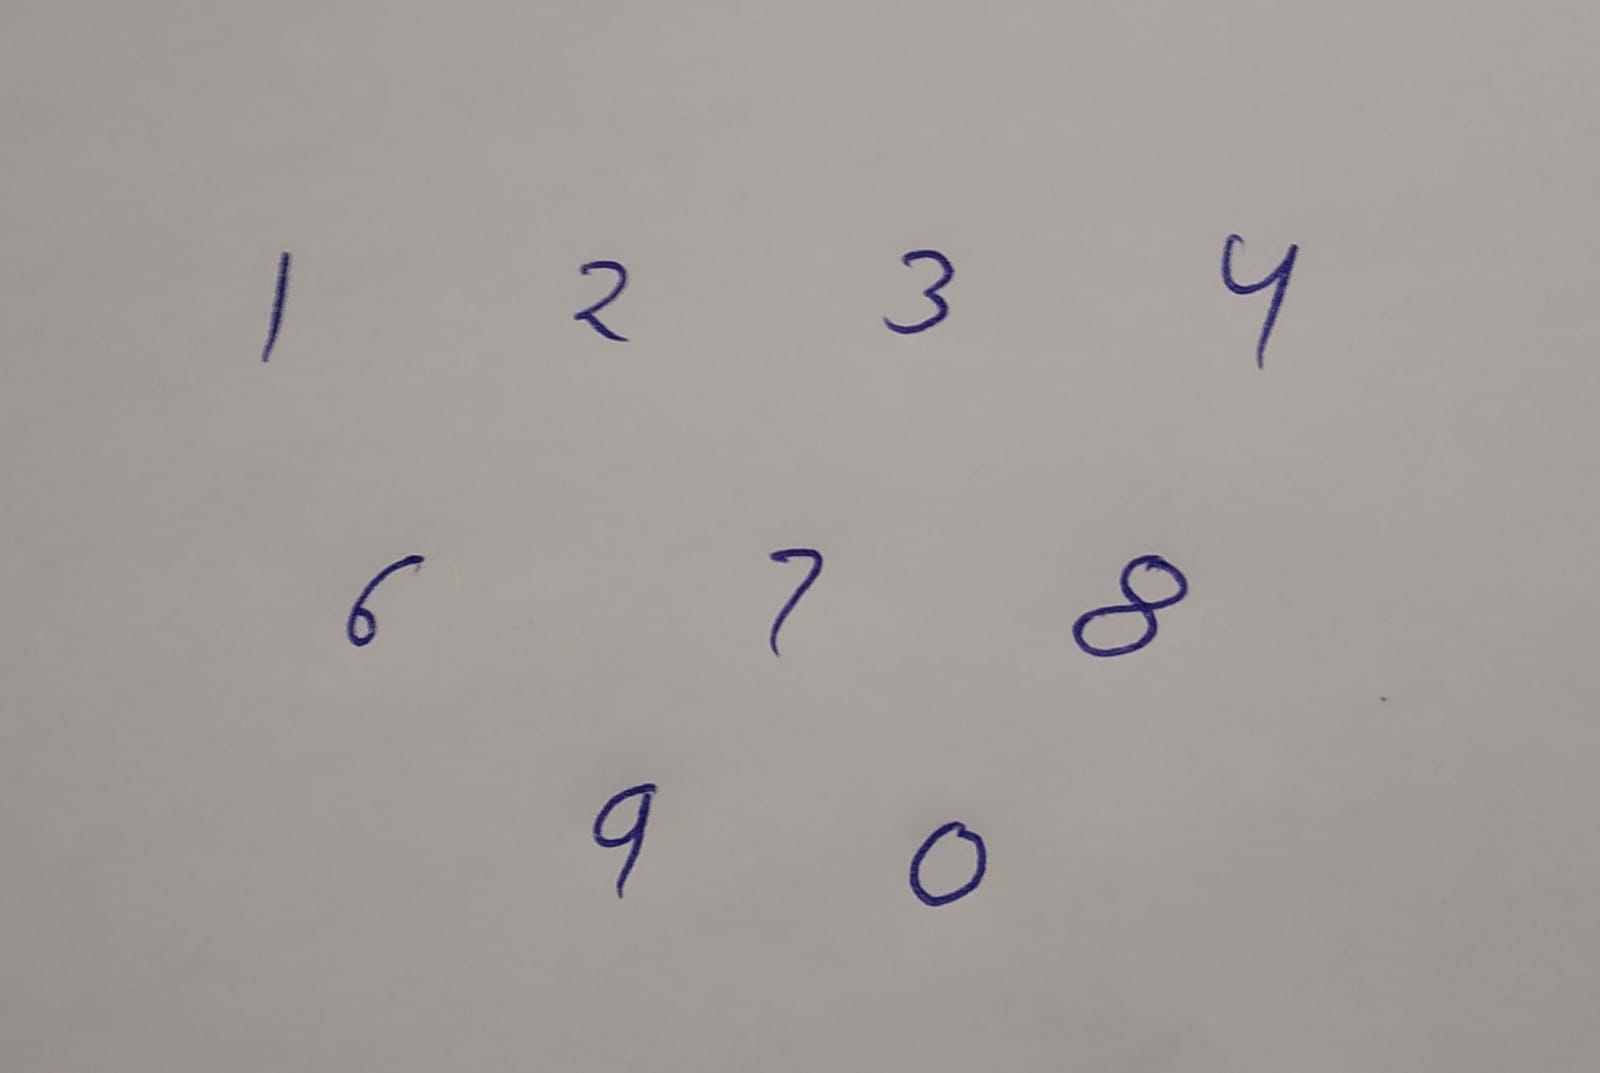 1 2 3 4
6 7 8
9 0